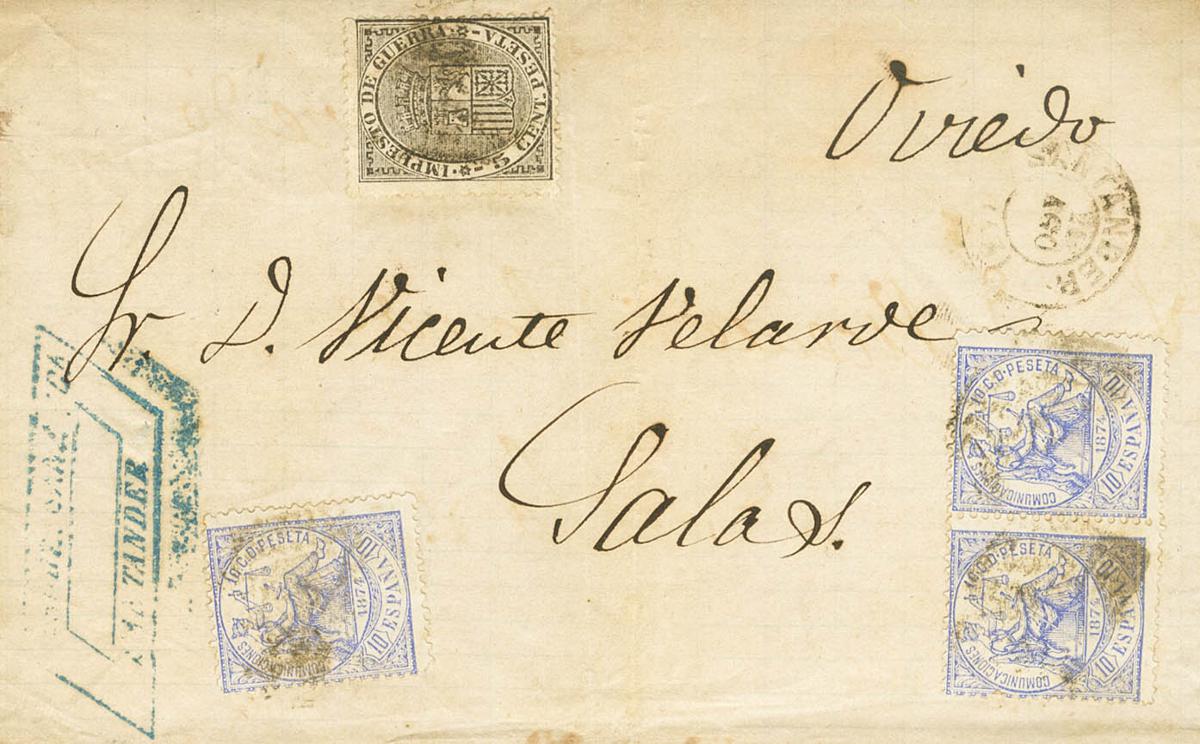 IMPUESTO DE GUERRA
5 CENT. PESETA
Oviedo
SANTANDER
AGO
Sr. D. Vicente Velarde
Salas.
TANDER
10 C. D. PESETA
COMUNICACIONES
1874
10 ESPAÑA 10
10 C. D. PESETA
COMUNICACIONES
1874
10 ESPAÑA 10
10 C. D. PESETA
COMUNICACIONES
1874
10 ESPAÑA 10